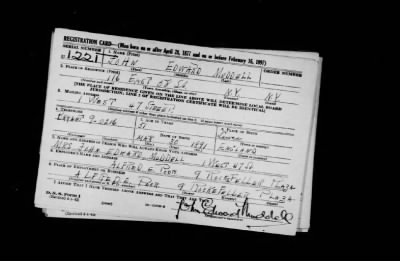 REGISTRATION CARD—(Men born on or after April 28, 1877 and on or before February 16, 1897)
SERIAL NUMBER
1. NAME (Print)
ORDER NUMBER
1221
JOHN EDWARD MUDDELL
2. PLACE OF RESIDENCE (Print)
116 EAST 57 ST N.Y. N.Y.
[THE PLACE OF RESIDENCE GIVEN ON THE LINE ABOVE WILL DETERMINE LOCAL BOARD
JURISDICTION; LINE 2 OF REGISTRATION CERTIFICATE WILL BE IDENTICAL]
3. MAILING ADDRESS
1 WEST 47 STREET
4. TELEPHONE
5. AGE IN YEARS
6. PLACE OF BIRTH
51
30 1891
ENGLAND
7. NAME AND ADDRESS OF PERSON WHO WILL ALWAYS KNOW YOUR ADDRESS
MRS JOHN EDWARD MUDDELL 1 WEST 47 ST
8. EMPLOYER'S NAME AND ADDRESS
ALFRED E. POOR 9 ROCKEFELLER PLAZA
9. PLACE OF EMPLOYMENT OR BUSINESS
ALFRED E. POOR 9 ROCKEFELLER PLAZA
I AFFIRM THAT I HAVE VERIFIED ABOVE ANSWERS AND THAT THEY ARE TRUE.
D. S. S. Form 1
John Edward Muddell